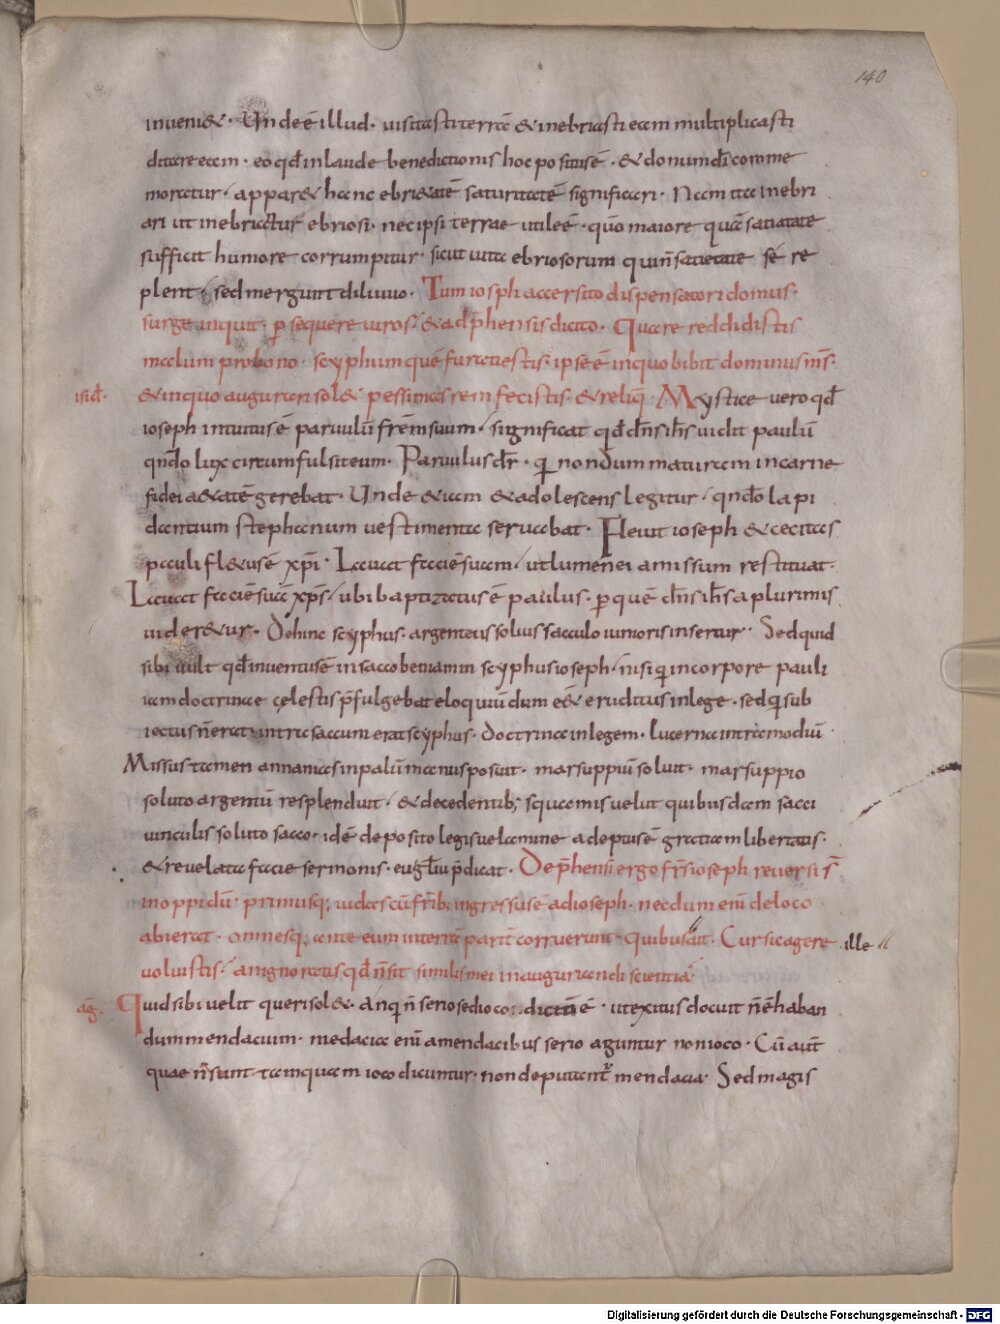 140
inueni&. Unde ē illud. uisitasti terrā & inebriasti eam multiplicasti
ditare eam. eo qđ in laude benedictionis hoc positū sē. & donum dī comme
moratur. appar& hanc ebri&atē saturitatē significari. Nam ita inebri
ari ut inebriatur ebriosi. nec ipsi terrae utile ē. quō maiore quā satiatate
sufficit humore corrumpitur. sicut uita ebriosorum qui ñ satietate sé re
plent. sed mergunt diluuio. Tum ioseph accersito dispensatori domus.
surge inquit. p sequere uiros. & adphensis dicito. Quare reddidistis
malum pro bono. scyphum quē furati estis. ipse ē in quo bibit dominus mś.
isiđ. & in quo augurari sol&. pessimā rem fecistis. & reliq̄. Mystice uero qđ
ioseph intuitus ē paruulū frēm suum. significat qđ dñs ihs uidit paulū
qndo lux circumfulsit eum. Paruulus dr̄. q nondum maturam in carne
fidei a&atē gerebat. Unde & iam & adolescens legitur. qndo lapi
dantium stephanum uestimenta seruabat. Fleuit ioseph & cecitas
pauli fl&us ē xp̄i. Lauat faciē suam. ut lumen ei amissum restituat.
Lauat faciē suā xp̄s. ubi baptizatus ē paulus. p quē dñs ihs a plurimis
uider&ur. Dehinc scyphus. argenteus solius sacculo iunioris inseritur. Sed quid
sibi uult qđ inuentus ē in sacco beniamin scyphus ioseph. nisi q in corpore pauli
iam doctrinae cęlestis p̄fulgebat eloquiū dum eēt eruditus in lege. sed q sub
iectus ñ erat. intra saccum erat scyphus. doctrina in legem. lucerna intra modiū.
Missus tamen annanias in palū manus posuit. marsuppiū soluit. marsuppio
soluto argentū resplenduit. & decedentib; squamis uelut quibusdam sacci
uinculis soluto sacco. idē deposito legis uelamine adeptus ē gratiam libertatis.
& reuelata facie sermonis. eugl̄iū p̄dicat. Dep̄hensi ergo fr̄s ioseph reuersi s̄
in oppidū. primusq; iudas cū frīb; ingressus ē ad ioseph. necdum eni de loco
abierat. omnesq; ante eum in terrā parit̄ corruerunt. quibus ait. Cur sic agere ille
uoluistis. an ignoratis qđ ñ sit similis mei in augurandi scientia.
aḡ. Quid sibi uelit queri sol&. an q ñ serio sed ioco dictū ē. ut exitus docuit ñ ē haben
dum mendacium. medacia eni a mendacibus serio aguntur non ioco. Cū aut̄
quae ñ sunt tamquam ioco dicuntur. non deputant̄ mendacia. Sed magis
Digitalisierung gefördert durch die Deutsche Forschungsgemeinschaft - DFG